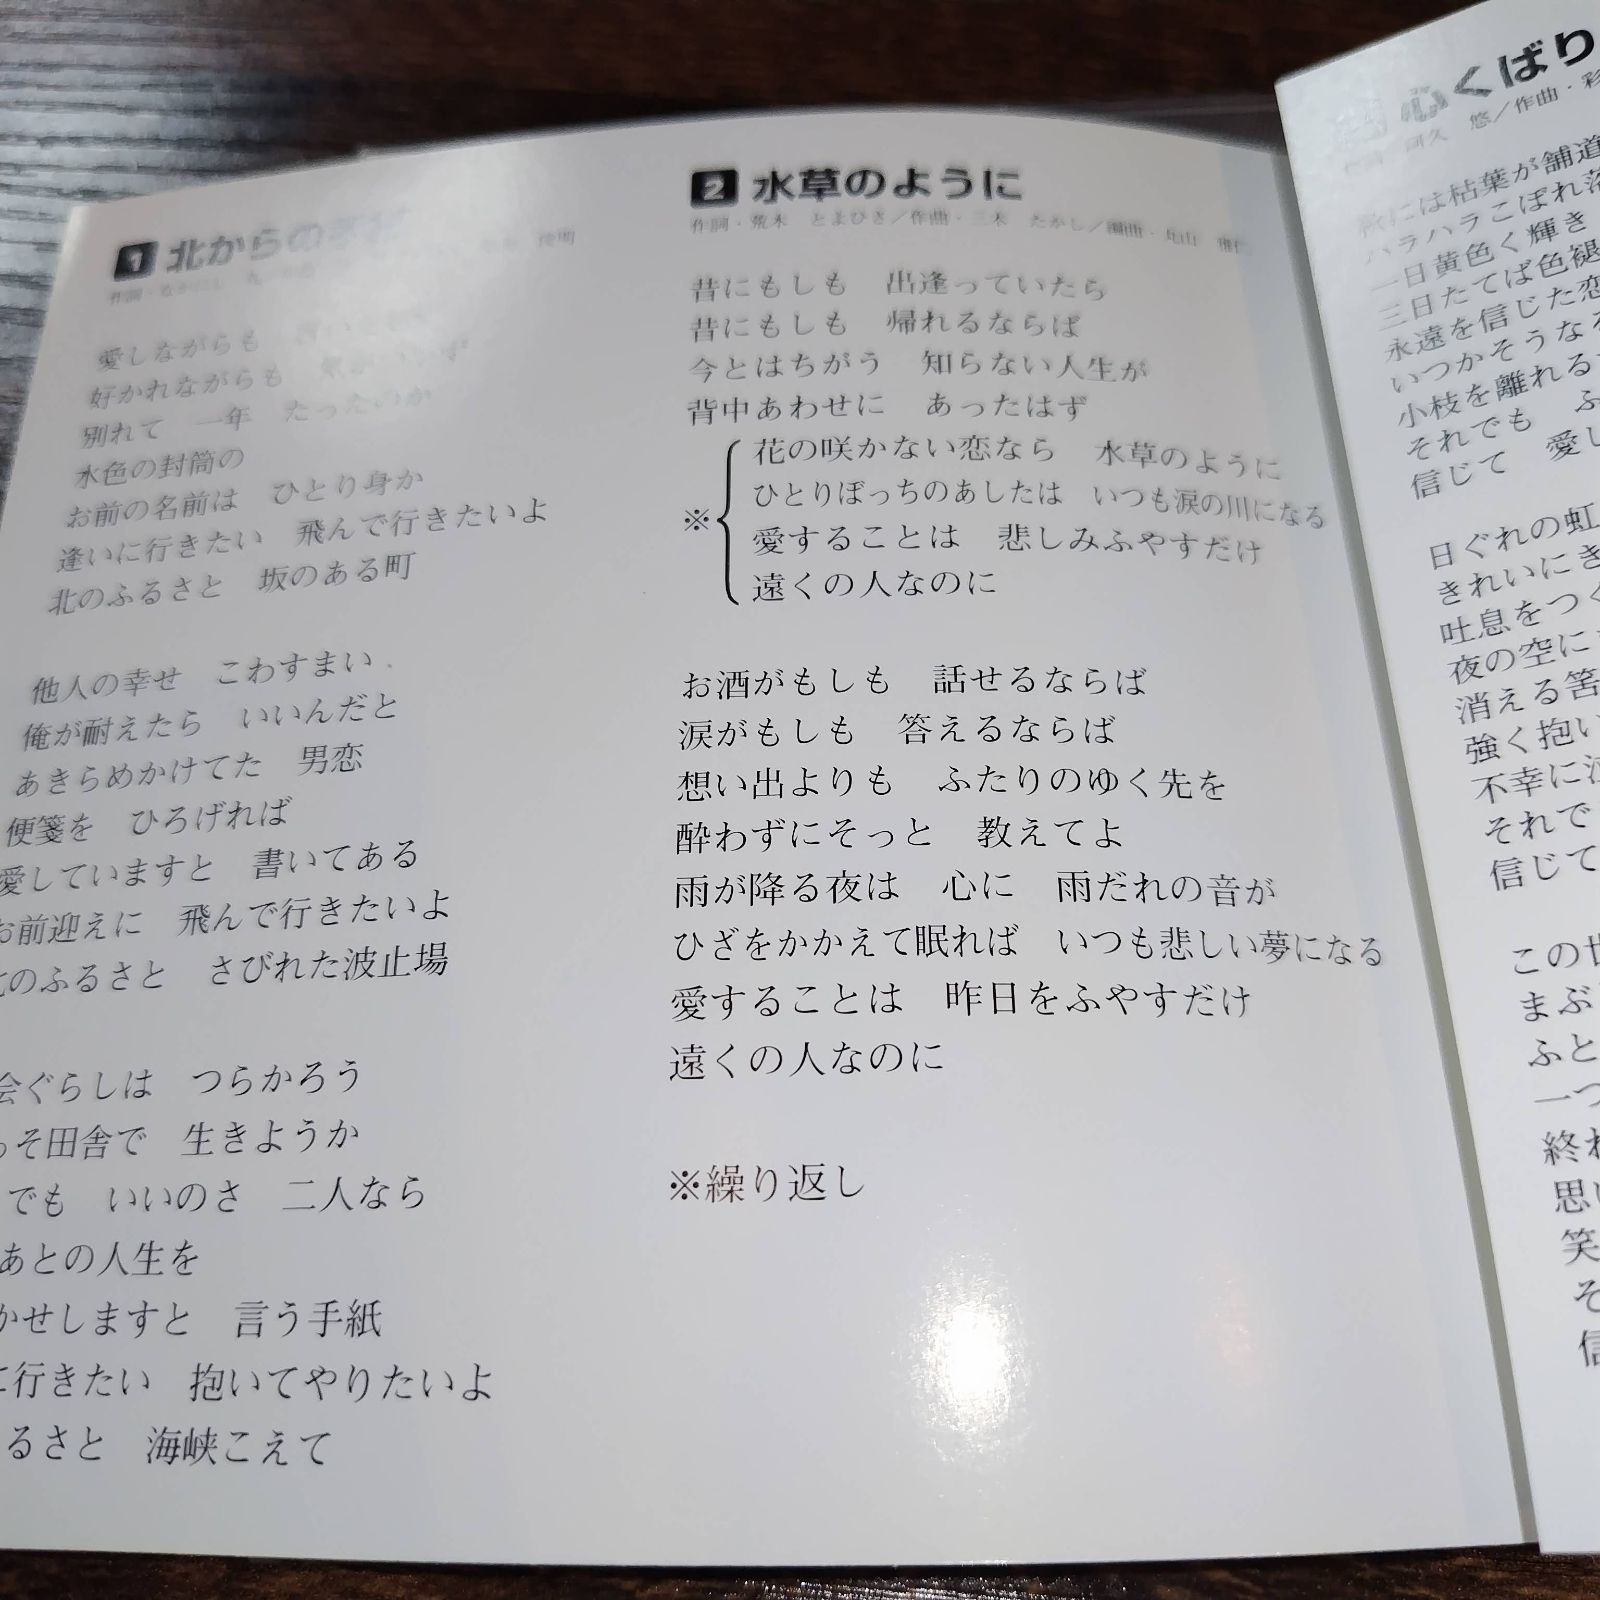 1 北からの手紙
愛しながらも
好かれながらも
別れて　一年　たったのか
水色の封筒の
お前の名前は　ひとり身か
逢いに行きたい　飛んで行きたいよ
北のふるさと　坂のある町
他人の幸せ　こわすまい
俺が耐えたら　いいんだと
あきらめかけてた　男恋
便箋を　ひろげれば
愛していますと　書いてある
お前迎えに　飛んで行きたいよ
のふるさと　さびれた波止場
会ぐらしは　つらかろう
っそ田舎で　生きようか
でも　いいのさ　二人なら
あとの人生を
かせしますと　言う手紙
に行きたい　抱いてやりたいよ
るさと　海峡こえて
2 水草のように
作詞・荒木　とよひさ／作曲・三木　たかし／編曲・丸山　雅仁
昔にもしも　出逢っていたら
昔にもしも　帰れるならば
今とはちがう　知らない人生が
背中あわせに　あったはず
花の咲かない恋なら　水草のように
ひとりぼっちのあしたは　いつも涙の川になる
※
愛することは　悲しみふやすだけ
遠くの人なのに
お酒がもしも　話せるならば
涙がもしも　答えるならば
想い出よりも　ふたりのゆく先を
酔わずにそっと　教えてよ
雨が降る夜は　心に　雨だれの音が
ひざをかかえて眠れば　いつも悲しい夢になる
愛することは　昨日をふやすだけ
遠くの人なのに
※繰り返し
心くばり
悠／作曲・彩
秋には枯葉が舗道
ハラハラこぼれ落
一日黄色く輝き
三日たてば色褪
永遠を信じた恋
いつかそうなる
小枝を離れる
それでも　ふ
信じて　愛し
日ぐれの虹
きれいにき
吐息をつく
夜の空に
消える筈
強く抱い
不幸に泣
それで
信じて
この世
まぶ
ふと
一つ
終わ
思い
笑
そ
信